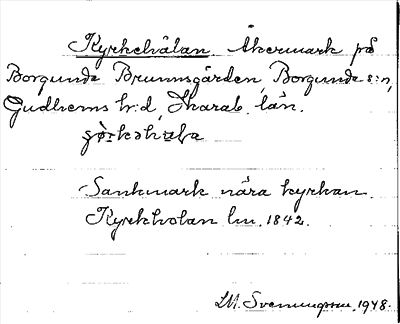 Kyrkehålan Åkermark på
Borgunda Brunnsgården, Borgunda s:n,
Gudhems h:d, Skarab. län.
Sankmark nära kyrkan.
Kyrkholan lm. 1842.
1948.